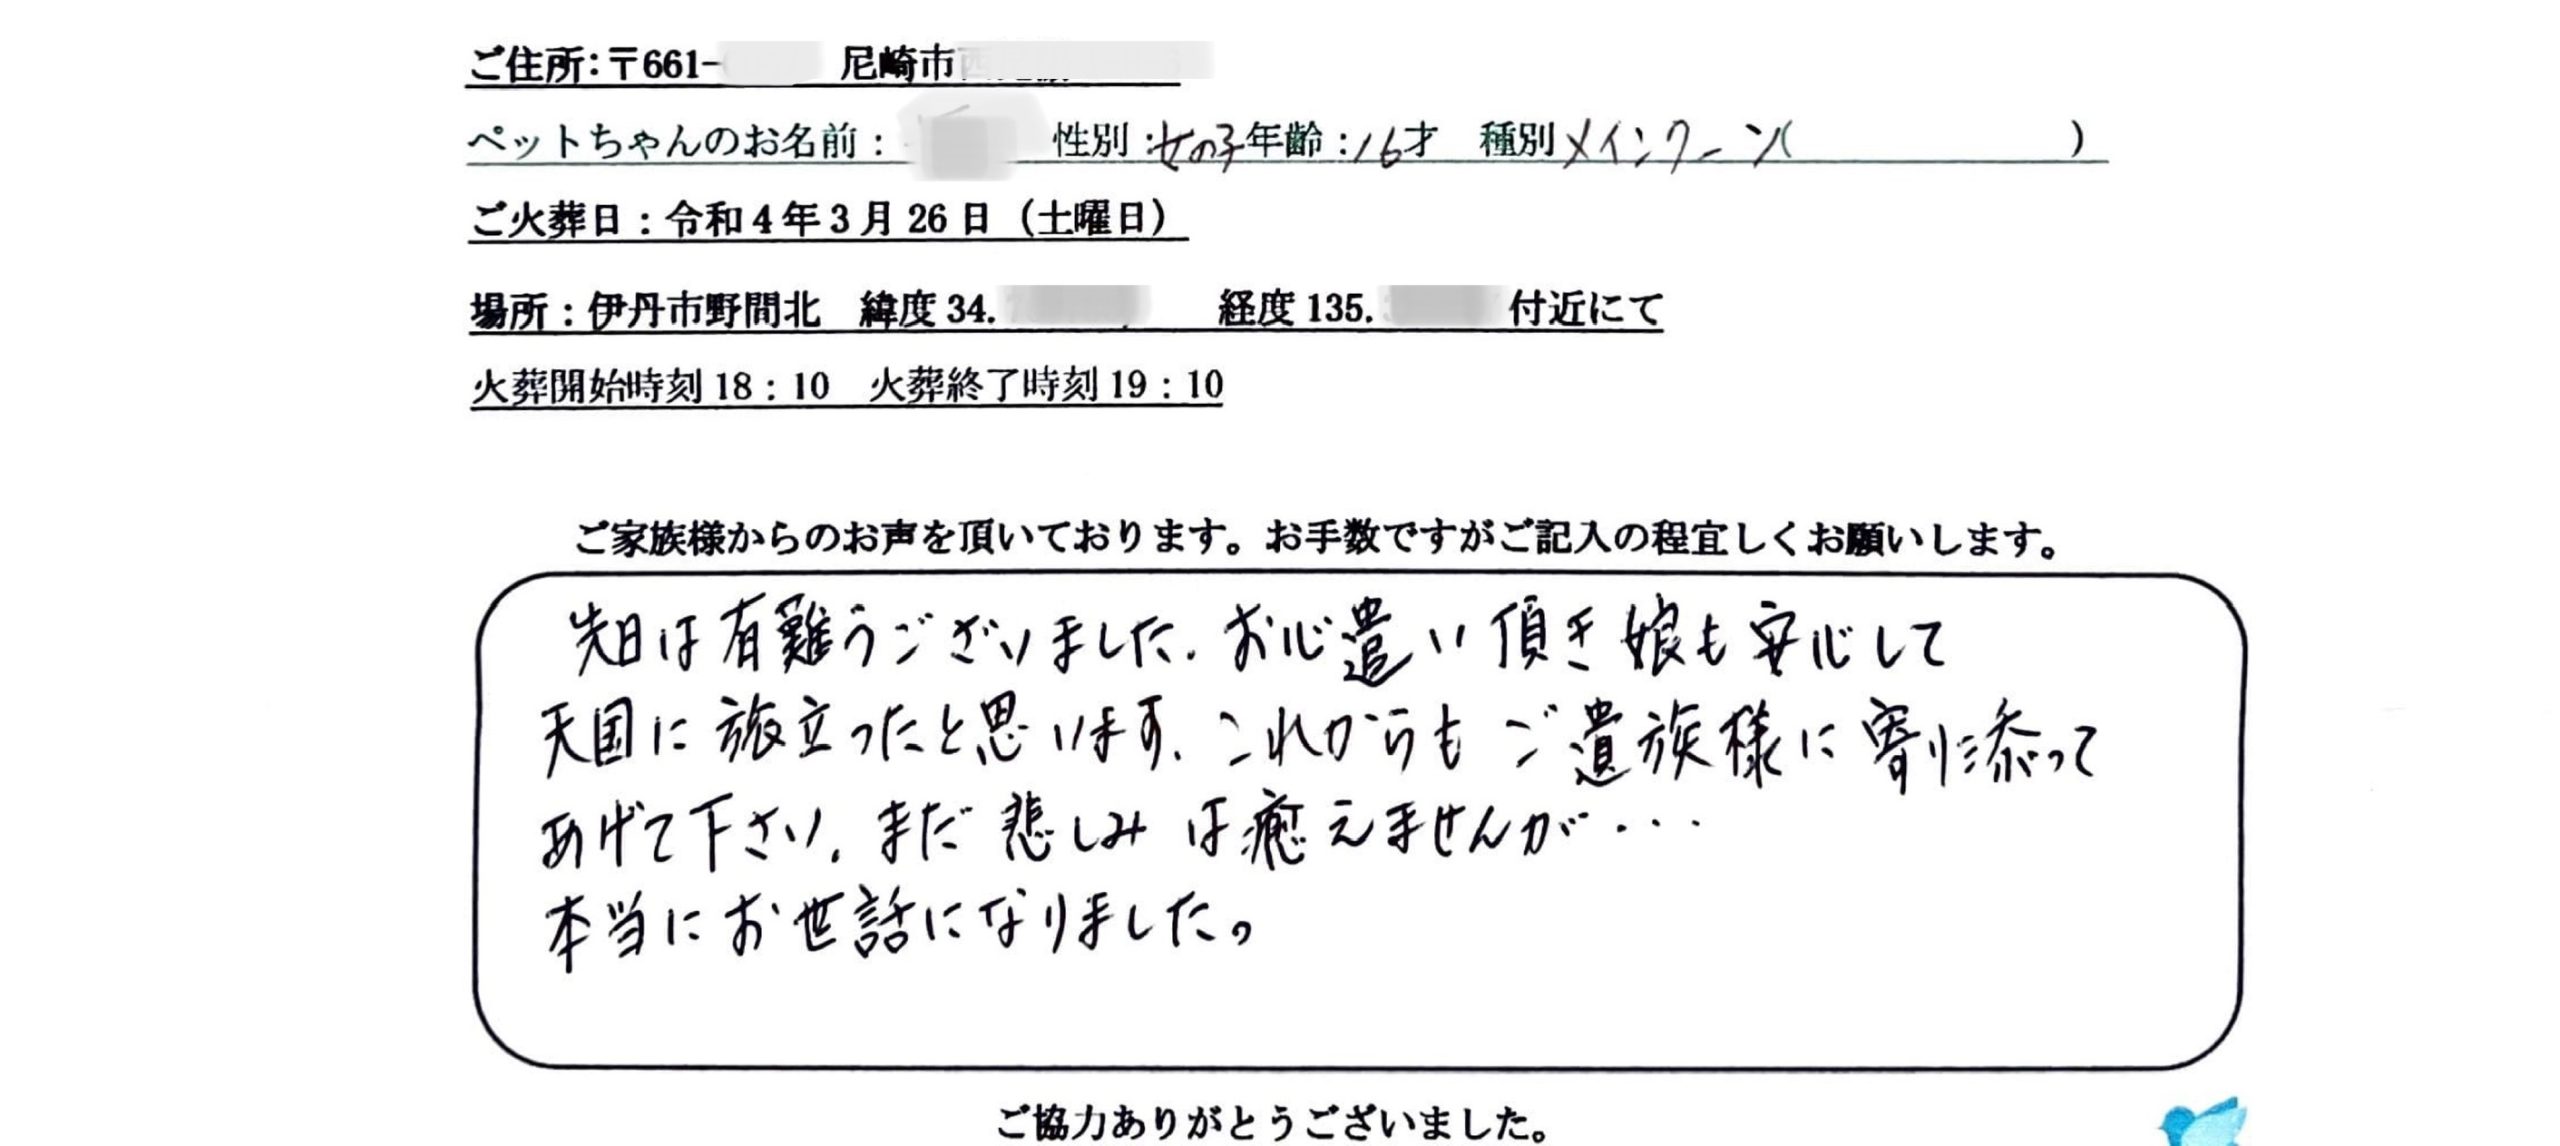 ご住所：〒661- 尼崎市
ペットちゃんのお名前： 性別：女の子 年齢：16才 種別メインクーン( )
ご火葬日：令和4年3月26日（土曜日）
場所：伊丹市野間北 緯度34. 経度135. 付近にて
火葬開始時刻18：10 火葬終了時刻19：10
ご家族様からのお声を頂いております。お手数ですがご記入の程宜しくお願いします。
先日は有難うございました。お心遣い頂き娘も安心して
天国に旅立ったと思います。これからもご遺族様に寄り添って
あげて下さい。まだ悲しみは癒えませんが・・・
本当にお世話になりました。
ご協力ありがとうございました。